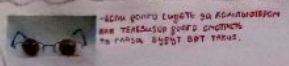 -ЕСЛИ ДОЛГО СИДЕТЬ ЗА КОМПЬЮТЕРОМ
ИЛИ ТЕЛЕВИЗОР ДОЛГО СМОТРЕТЬ
ТО ГЛАЗА БУДУТ ВОТ ТАКИЕ.